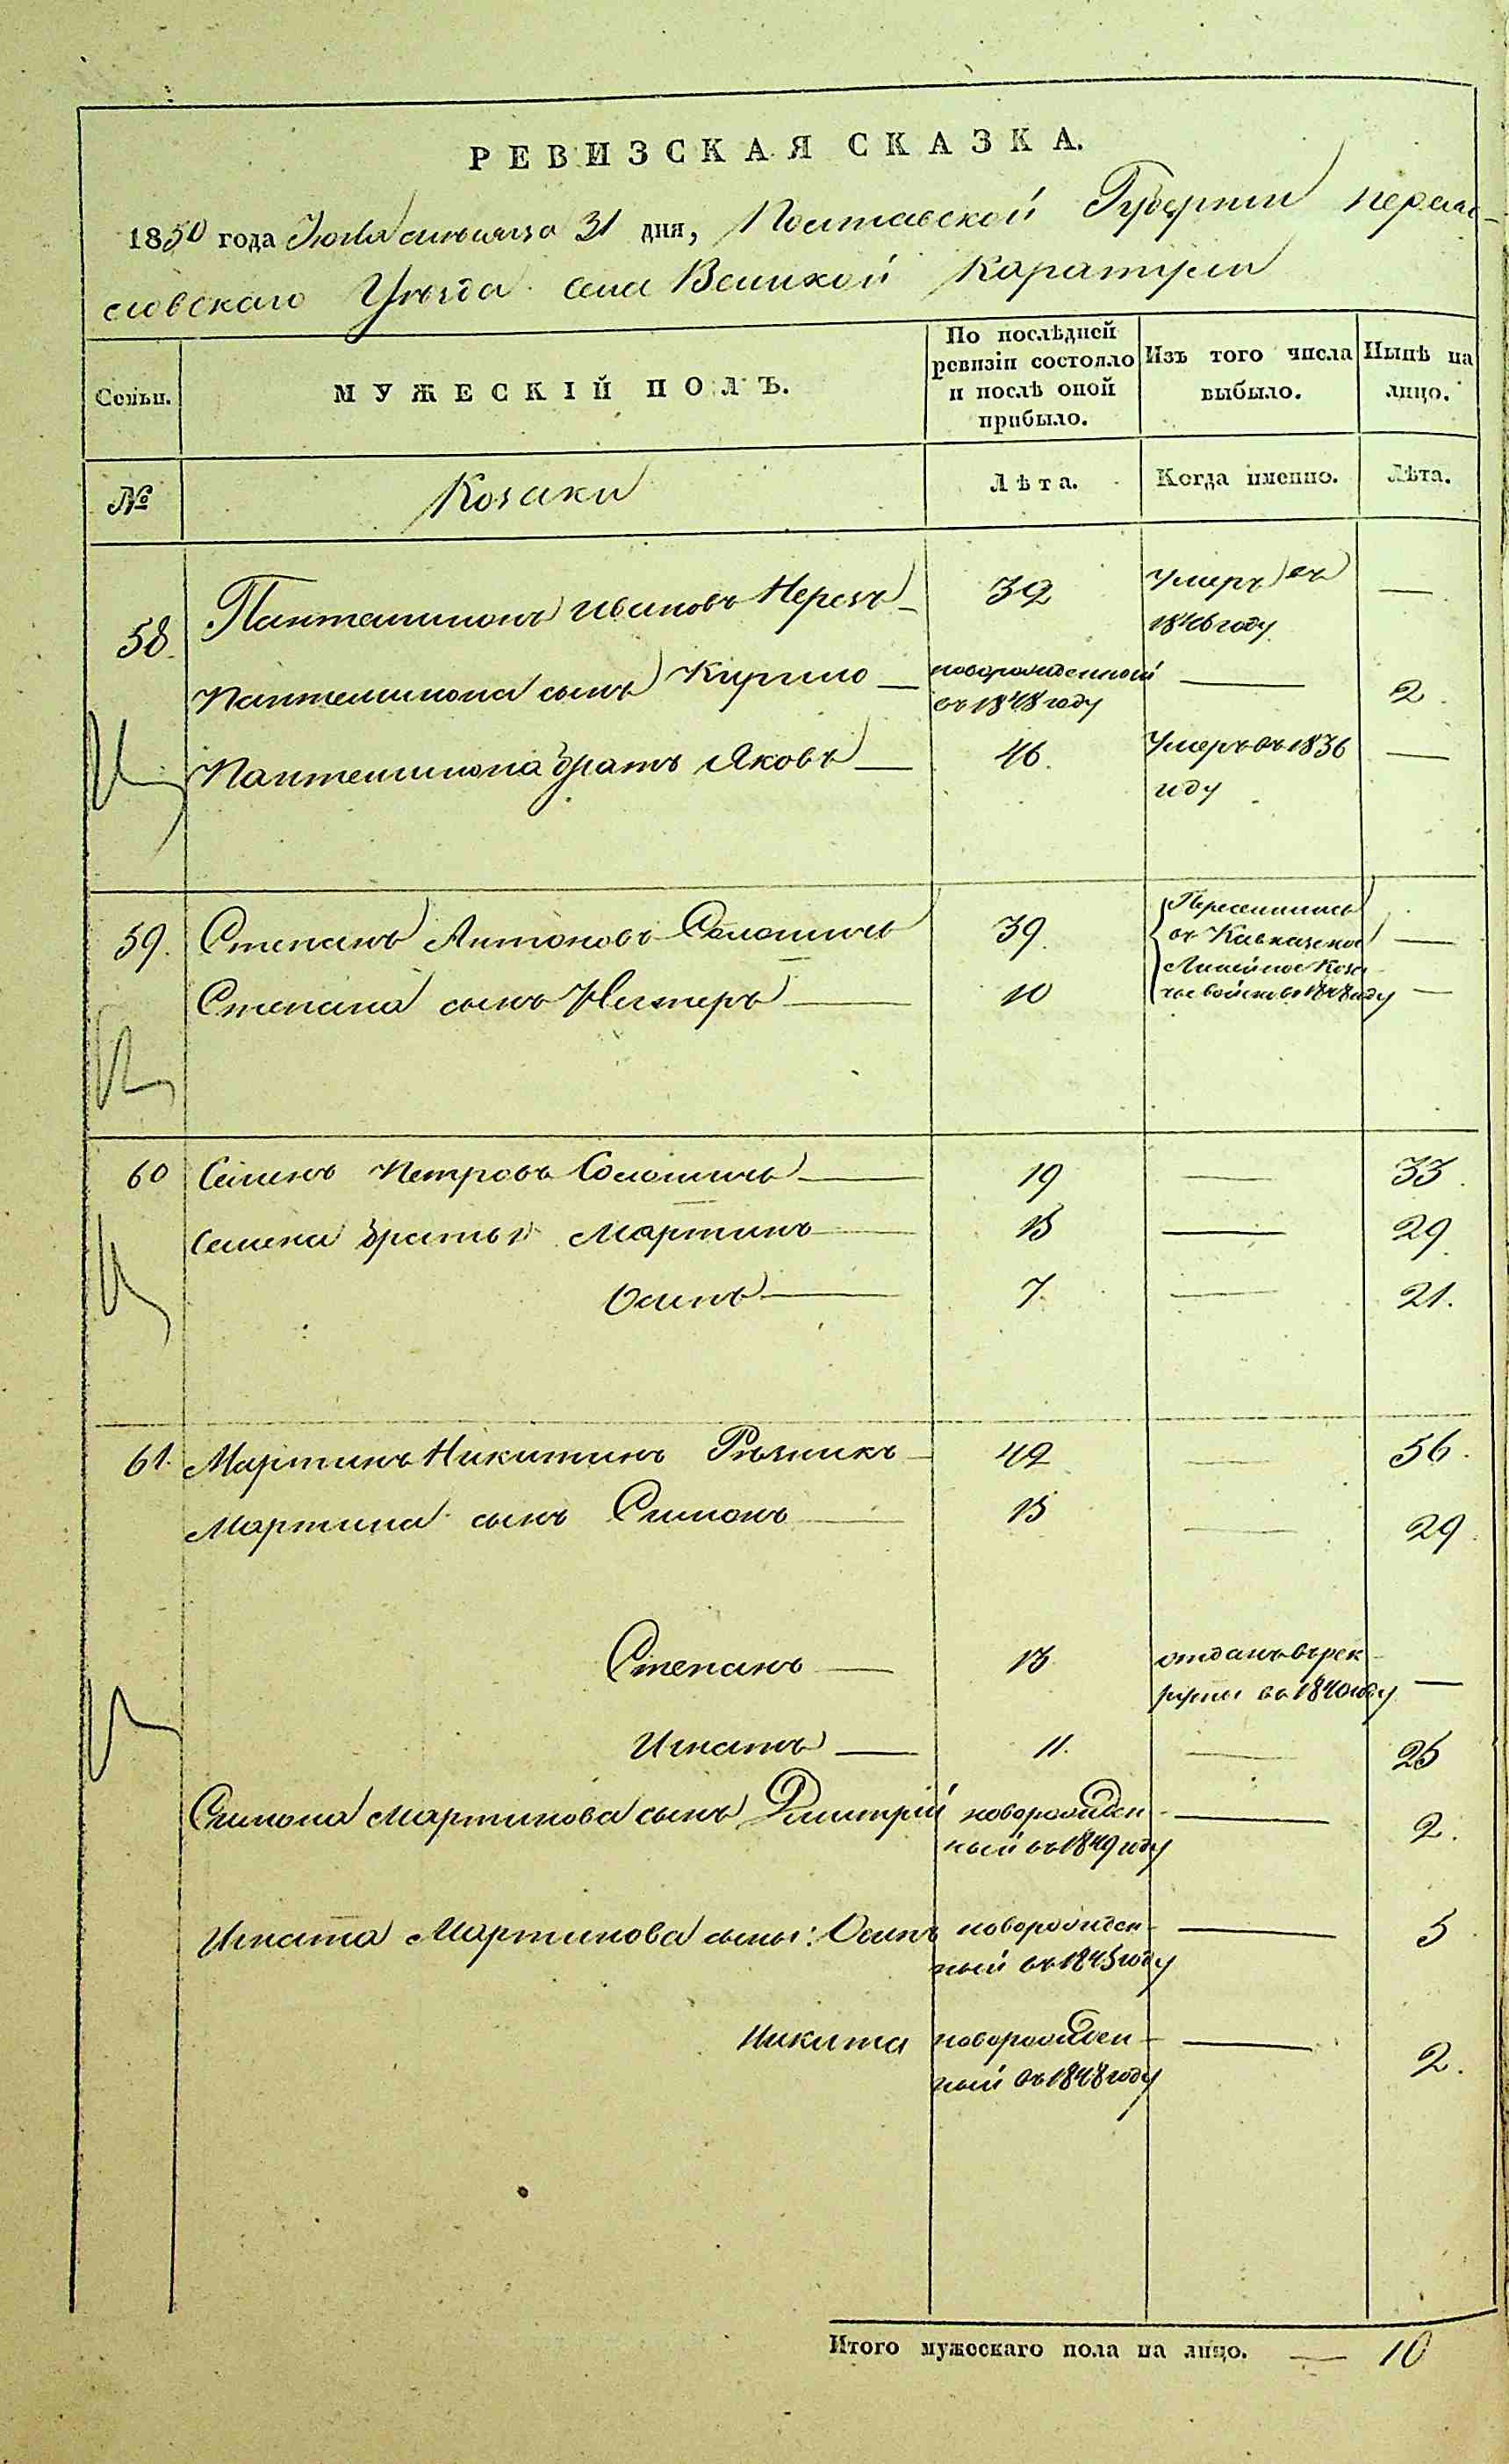 РЕВИЗСКАЯ СКАЗКА.
1850 года Июля месяца 31 дня, Полтавской Губернии Переяс-
словскаго Уѣзда села Великой Каратули
Семьи.
МУЖЕСКІЙ ПОЛЪ.
По послѣдней ревизіи состояло и послѣ оной прибыло.
Изъ того числа выбыло.
Нынѣ на лицо.
№
Козаки
Лѣта.
Когда именно.
Лѣта.
58. Пантелимонъ Ивановъ Нерезъ 32 умеръ въ —
1846 году
Пантелимона сынъ Кирило — новорожденный — 2.
въ 1848 году
Пантелимона братъ Яковъ — 46. Умеръ въ 1836 —
году
59. Степанъ Антоновъ Соломинъ 39. Переселились —
въ Кавказское
Степана сынъ Нестеръ — 10 Линейное Коза-
чье войско въ 1848 году —
60 Семенъ Петровъ Соломинъ — 19 — 33.
Семена братья Мартинъ — 15 — 29.
Осипъ — 7. — 21.
61. Мартинъ Никитинъ Рѣзникъ — 42 — 56.
Мартина сынъ Симонъ — 15 — 29.
Степанъ — 13 отданъ въ рек-
руты въ 1840 году —
Игнатъ — 11. — 25
Симона Мартинова сынъ Дмитрій новорожден- — 2.
ный въ 1849 году
Игната Мартинова сыны: Осипъ новорожден- — 5
ный въ 1845 году
Никита новорожден- — 2.
ный въ 1848 году
Итого мужескаго пола на лицо. — 10